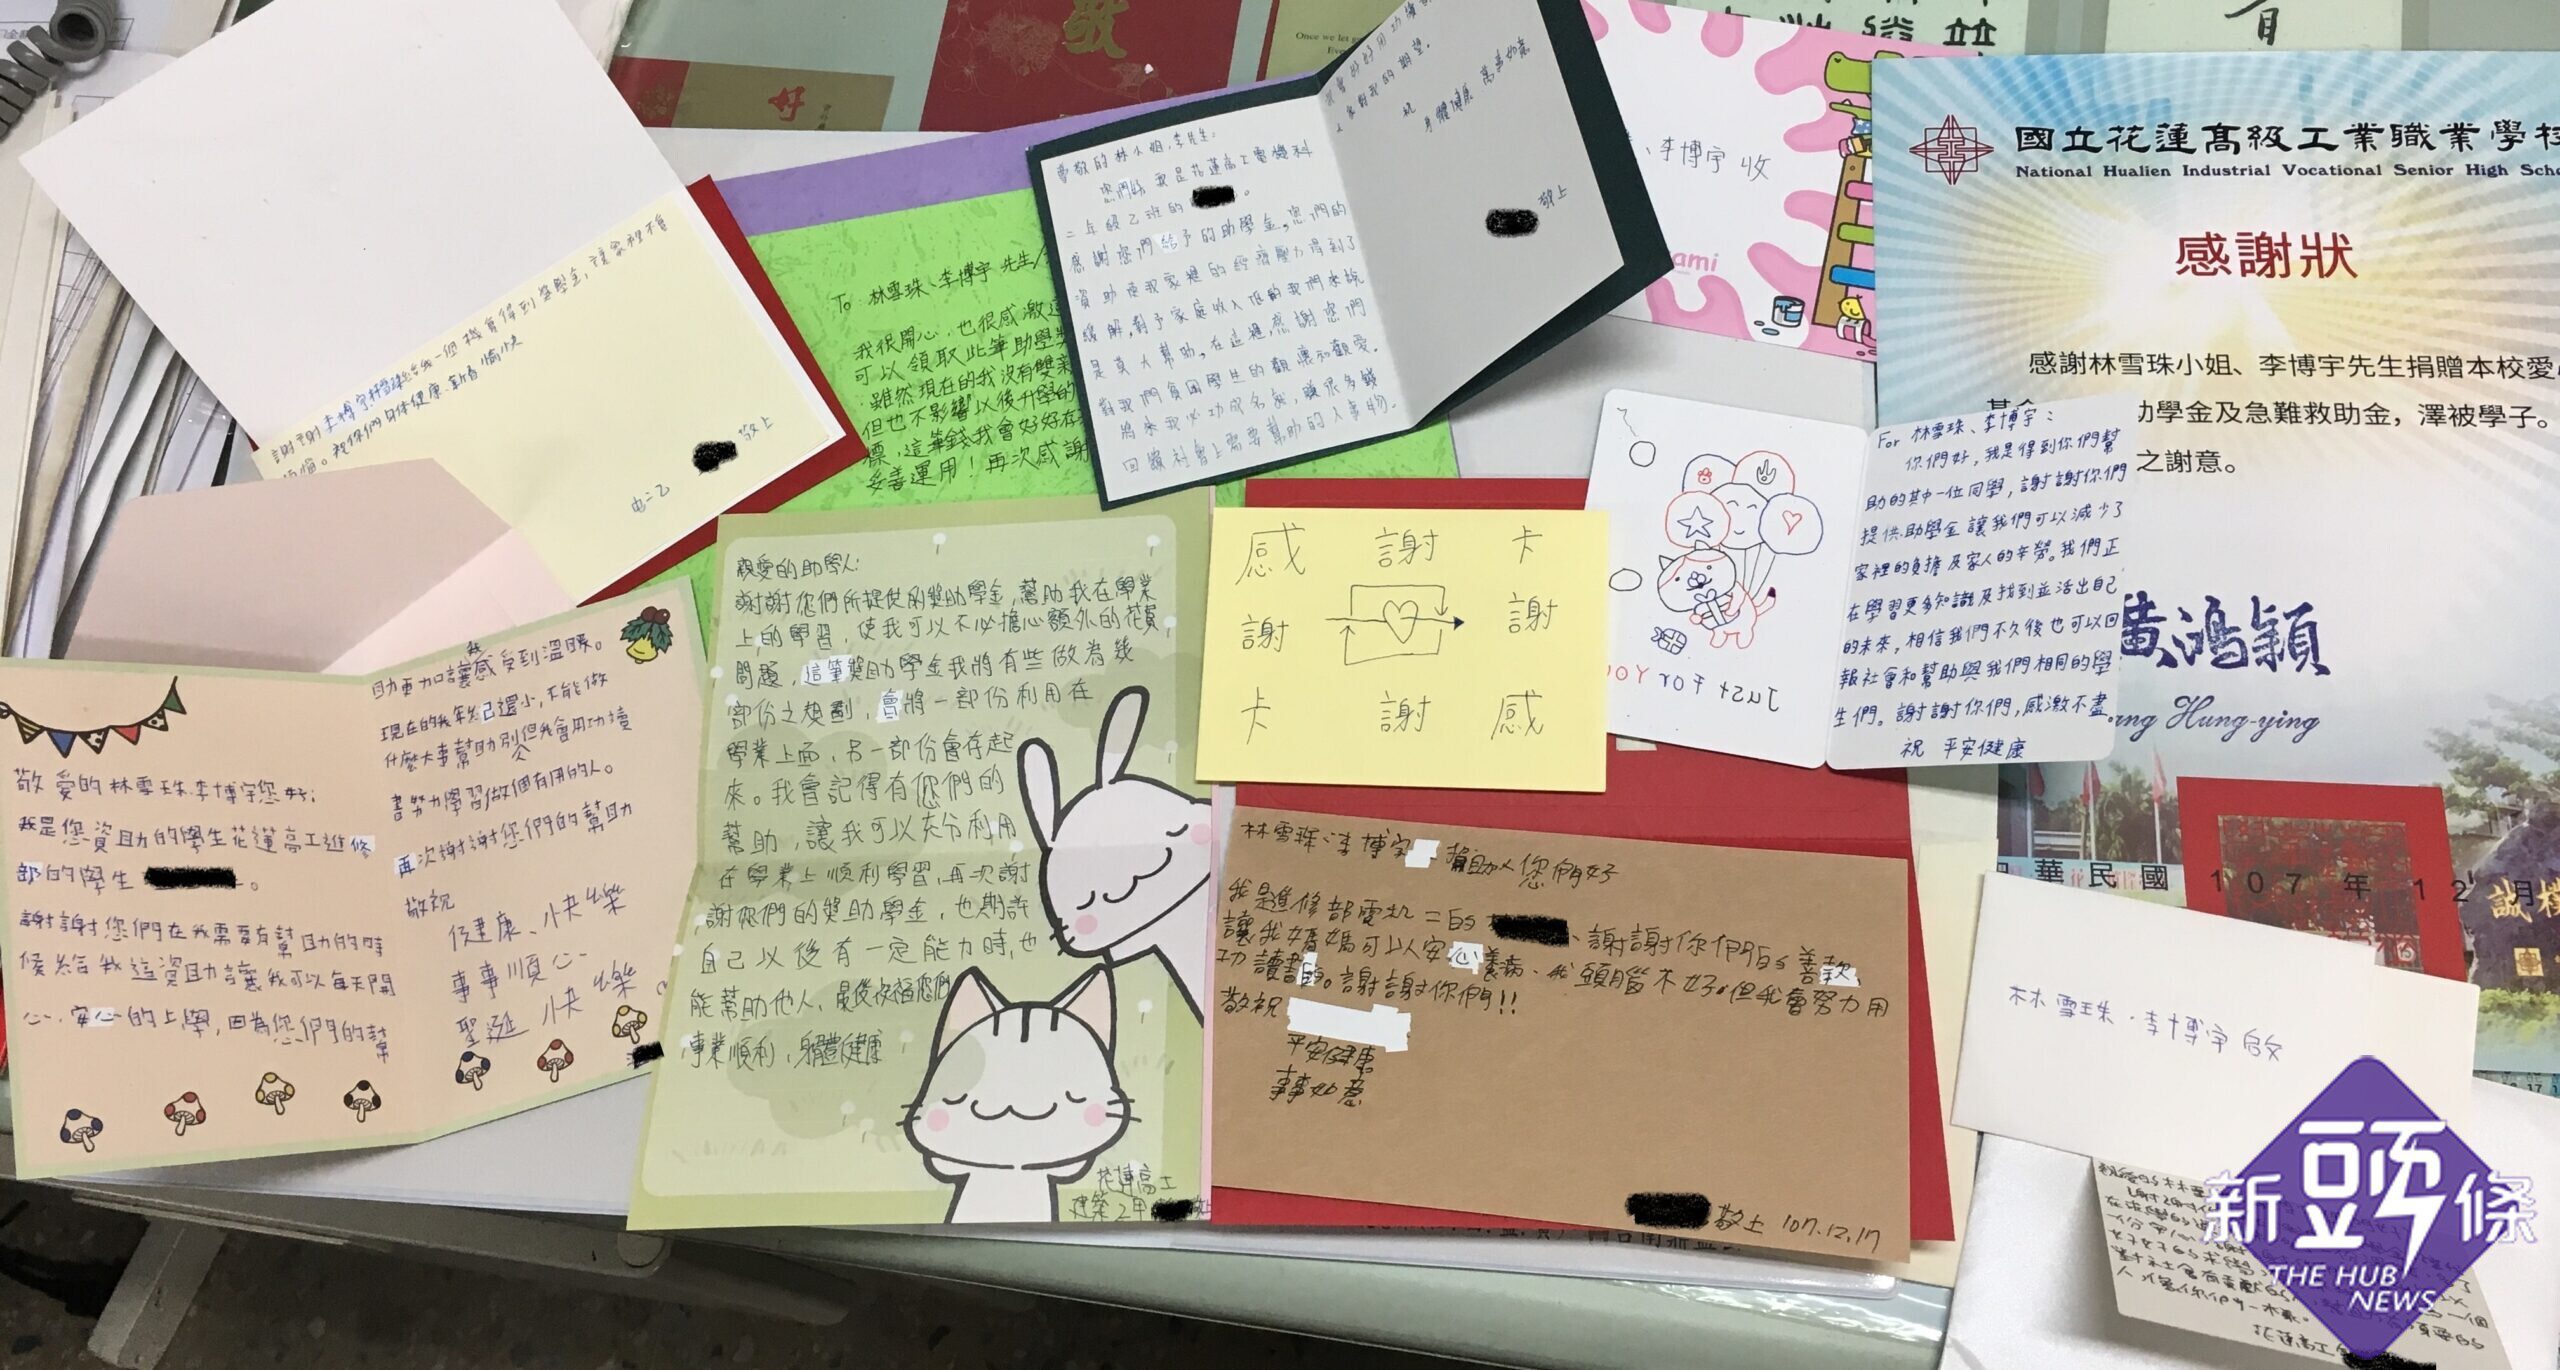 好
敬
Once we let
謝謝李博宇林雪珠給我一個機會得到獎學金,讓家裡不會
煩惱。祝你們身体健康.新春愉快
敬上
电二乙
To 林雪珠、李博宇 先生
我很開心,也很感激
可以領取此筆助學
雖然現在的我沒有雙
但也不影響以後升學的
標,這筆錢我會好好存
妥善運用!再次感謝
尊敬的林小姐,李先生:
您們好,我是花蓮高工電機科
二年級乙班的
感謝您們給予的助學金,您們的
資助使我家裡的經濟壓力得到了
緩解,對于家庭收入低的我們來說
是莫大幫助,在這裡,感謝您們
對我們貧困學生的關懷和關愛。
將來我必功成名就,賺很多錢
回饋社會上需要幫助的人事物。
我會好好用功
人家對我的期望。
祝
身體健康 萬事如意
敬上
、李博宇 收
國立花蓮高級工業職業學校
National Hualien Industrial Vocational Senior High
感謝狀
感謝林雪珠小姐、李博宇先生捐贈本校愛
助學金及急難救助金，澤被學子。
之謝意。
黃鴻穎
Hung-ying
中華民國 107 年 12 月
誠樸
For 林雪珠、李博宇:
你們好,我是得到你們幫
助的其中一位同學,謝謝你們
提供助學金讓我們可以減少了
家裡的負擔及家人的辛勞。我們正
在學習更多知識及找到並活出自己
的未來,相信我們不久後也可以回
報社會和幫助與我們相同的學
生們。謝謝你們,感激不盡
祝 平安健康
Just For You
感 謝 卡
謝 謝
卡 謝 感
敬愛的林雪珠.李博宇您好:
我是您資助的學生花蓮高工進修
部的學生 。
謝謝您們在我需要有幫助的時
候給我這資助讓我可以每天開
心、安心的上學,因為您們的幫
助更加讓我感受到溫暖。
現在的我年紀還小,不能做
什麼大事幫助別人但我會用功讀
書努力學習做個有用的人。
再次謝謝您們的幫助
敬祝
健康、快樂
事事順心
聖誕 快樂
親愛的助學人:
謝謝您們所提供的獎助學金,幫助我在學業
上的學習,使我可以不必擔心額外的花費
問題,這筆獎助學金我將有些做為幾
部份之規劃,會將一部份利用在
學業上面,另一部份會存起
來。我會記得有您們的
幫助,讓我可以充分利用
在學業上順利學習,再次謝
謝您們的獎助學金,也期許
自己以後有一定能力時,也
能幫助他人,最後祝福您們
事業順利,身體健康
花蓮高工
建築2甲
林雪珠、李博宇 捐助人您們好
我是進修部電机二的 、謝謝你們的善款,
讓我媽媽可以安心養病、我頭腦不好,但我會努力用
功讀書。謝謝你們!!
敬祝
平安健康
事事如意
敬上 107.12.17
林雪珠.李博宇啟
花蓮高工
新頭條
THE HUB
NEWS